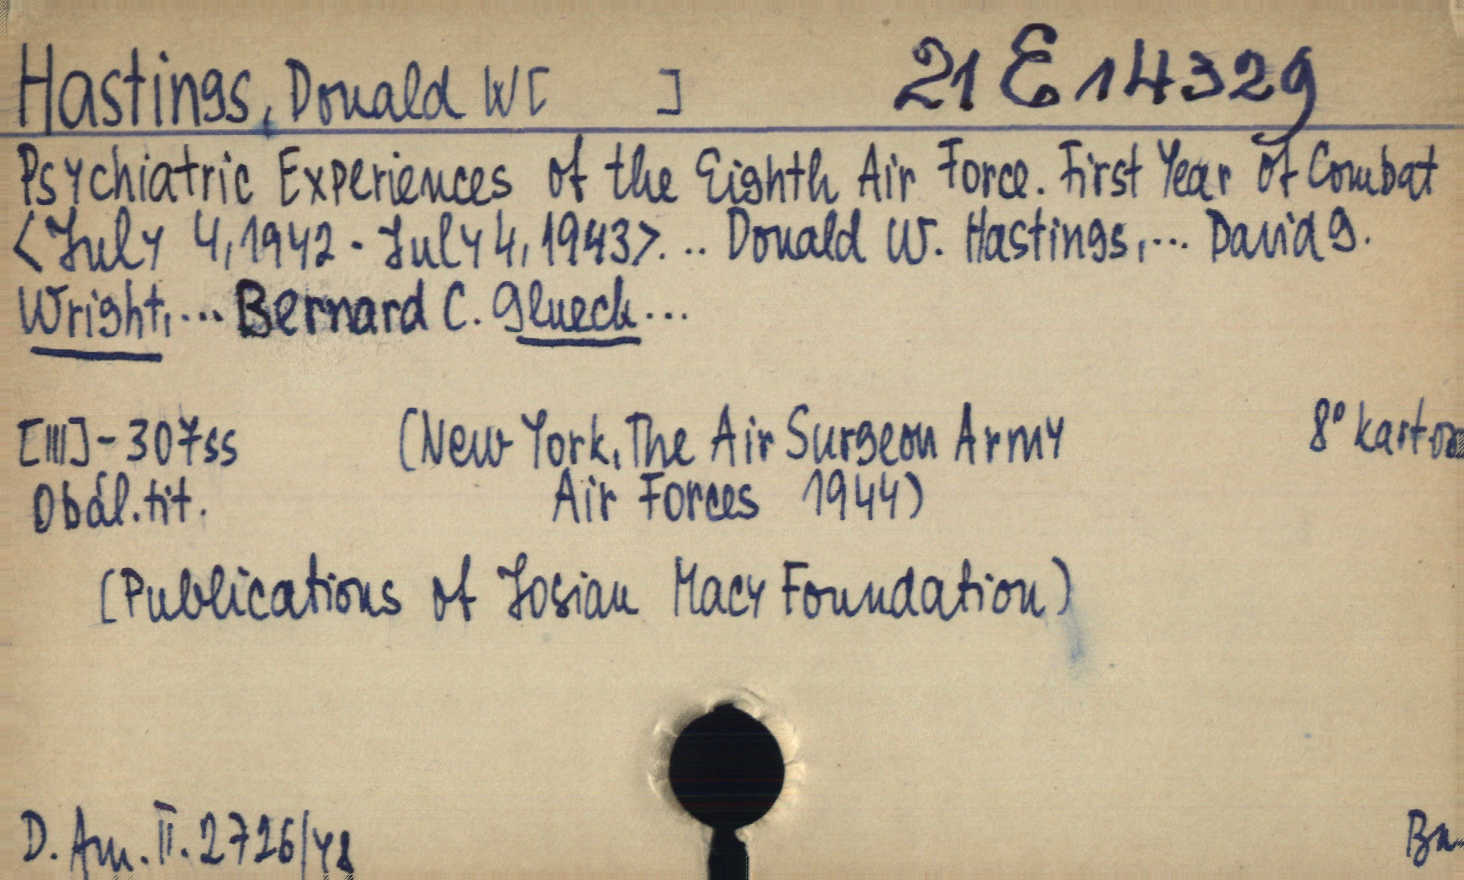 Hastings, Donald W[ ] 21 E 14329
Psychiatric Experiences of the Eighth Air Force. First Year of Combat
<July 4, 1942 - July 4, 1943>. .. Donald W. Hastings, ... David G.
Wright, ... Bernard C. Glueck ...
[III] - 307 ss (New York, The Air Surgeon Army 8° karton
Obál. tit. Air Forces 1944)
(Publications of Josiau Macy Foundation)
D. Am. II. 2726/48 Ba-